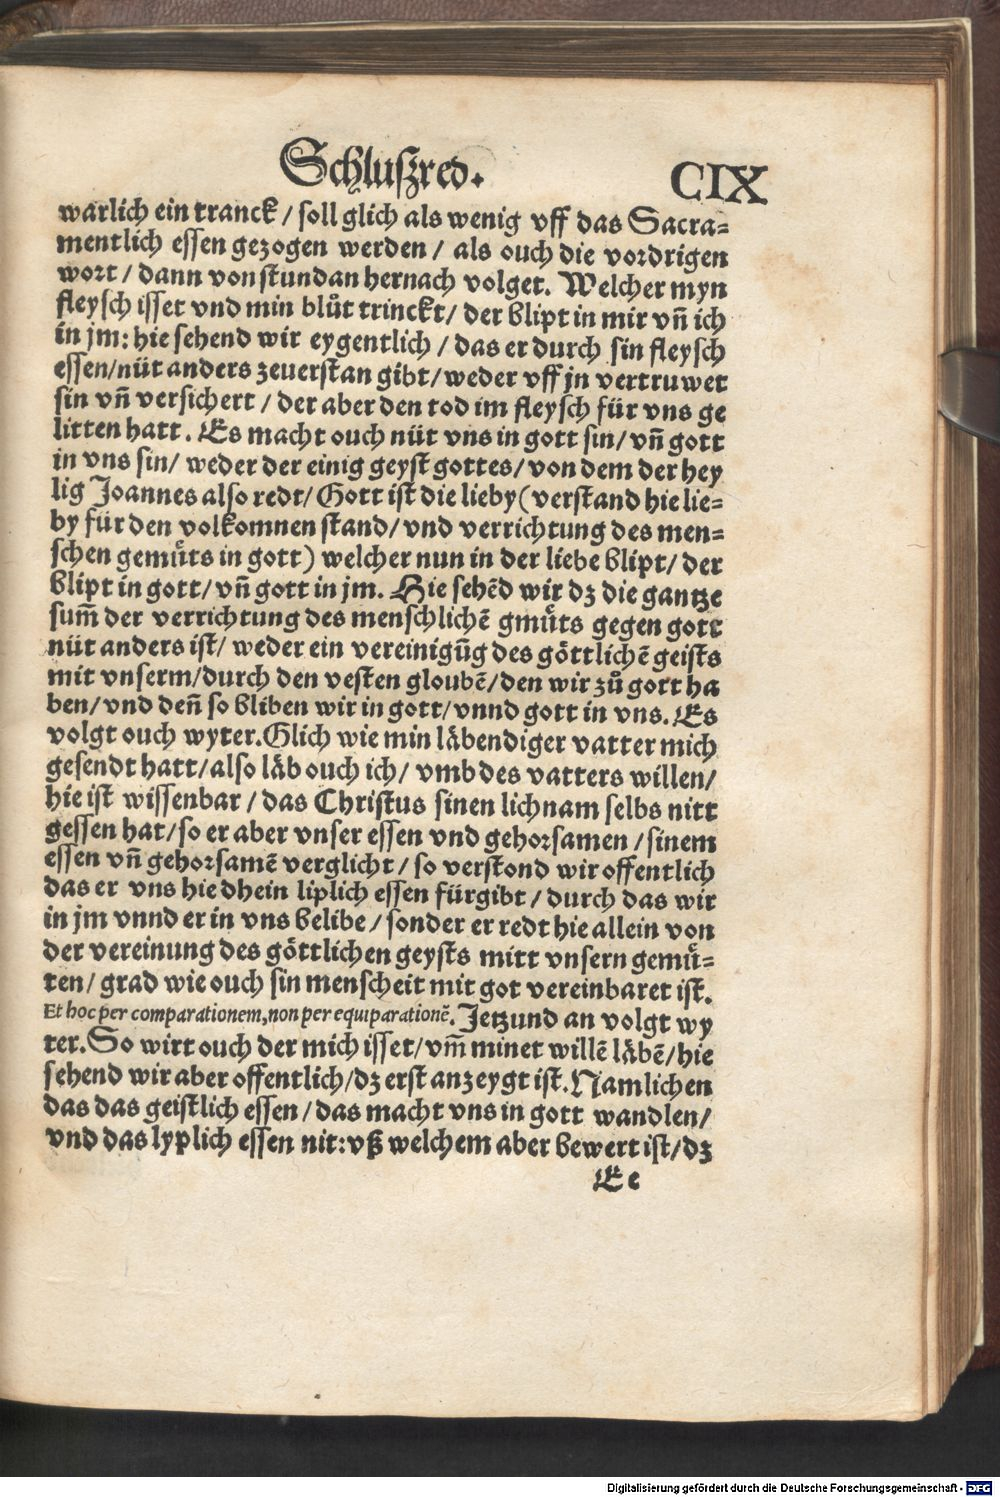 Schluszred. CIX
warlich ein tranck / soll glich als wenig vff das Sacra-
mentlich essen gezogen werden / als ouch die vordrigen
wort / dann von stund an hernach volget. Welcher myn
fleysch isset vnd min blůt trinckt / der blipt in mir vñ ich
in jm: hie sehend wir eygentlich / das er durch sin fleysch
essen / nüt anders zeuerstan gibt / weder vff jn vertruwet
sin vñ versichert / der aber den tod im fleysch für vns ge
litten hatt. Es macht ouch nüt vns in gott sin / vñ gott
in vns sin / weder der einig geyst gottes / von dem der hey
lig Joannes also redt / Gott ist die lieby (verstand hie lie-
by für den volkomnen stand / vnd verrichtung des men-
schen gemuͤts in gott) welcher nun in der liebe blipt / der
blipt in gott / vñ gott in jm. Hie sehẽd wir dz die gantze
sum̃ der verrichtung des menschlichẽ gmuͤts gegen gott
nüt anders ist / weder ein vereinigũg des göttlichẽ geists
mit vnserm / durch den vesten gloubẽ / den wir zů gott ha
ben / vnd den̄ so bliben wir in gott / vnnd gott in vns. Es
volgt ouch wyter. Glich wie min läbendiger vatter mich
gesendt hatt / also läb ouch ich / vmb des vatters willen /
hie ist wissenbar / das Christus sinen lichnam selbs nitt
gessen hat / so er aber vnser essen vnd gehorsamen / sinem
essen vñ gehorsamẽ verglicht / so verstond wir offentlich
das er vns hie dhein liplich essen fürgibt / durch das wir
in jm vnnd er in vns belibe / sonder er redt hie allein von
der vereinung des göttlichen geysts mitt vnsern gemuͤ-
ten / grad wie ouch sin menscheit mit got vereinbaret ist.
Et hoc per comparationem, non per equiparationẽ. Jetzund an volgt wy
ter. So wirt ouch der mich isset / vm̃ minet willẽ läbẽ / hie
sehend wir aber offentlich / dz erst anzeygt ist. Namlichen
das das geistlich essen / das macht vns in gott wandlen /
vnd das lyplich essen nit: vß welchem aber bewert ist / dz
Ee
Digitalisierung gefördert durch die Deutsche Forschungsgemeinschaft - DFG